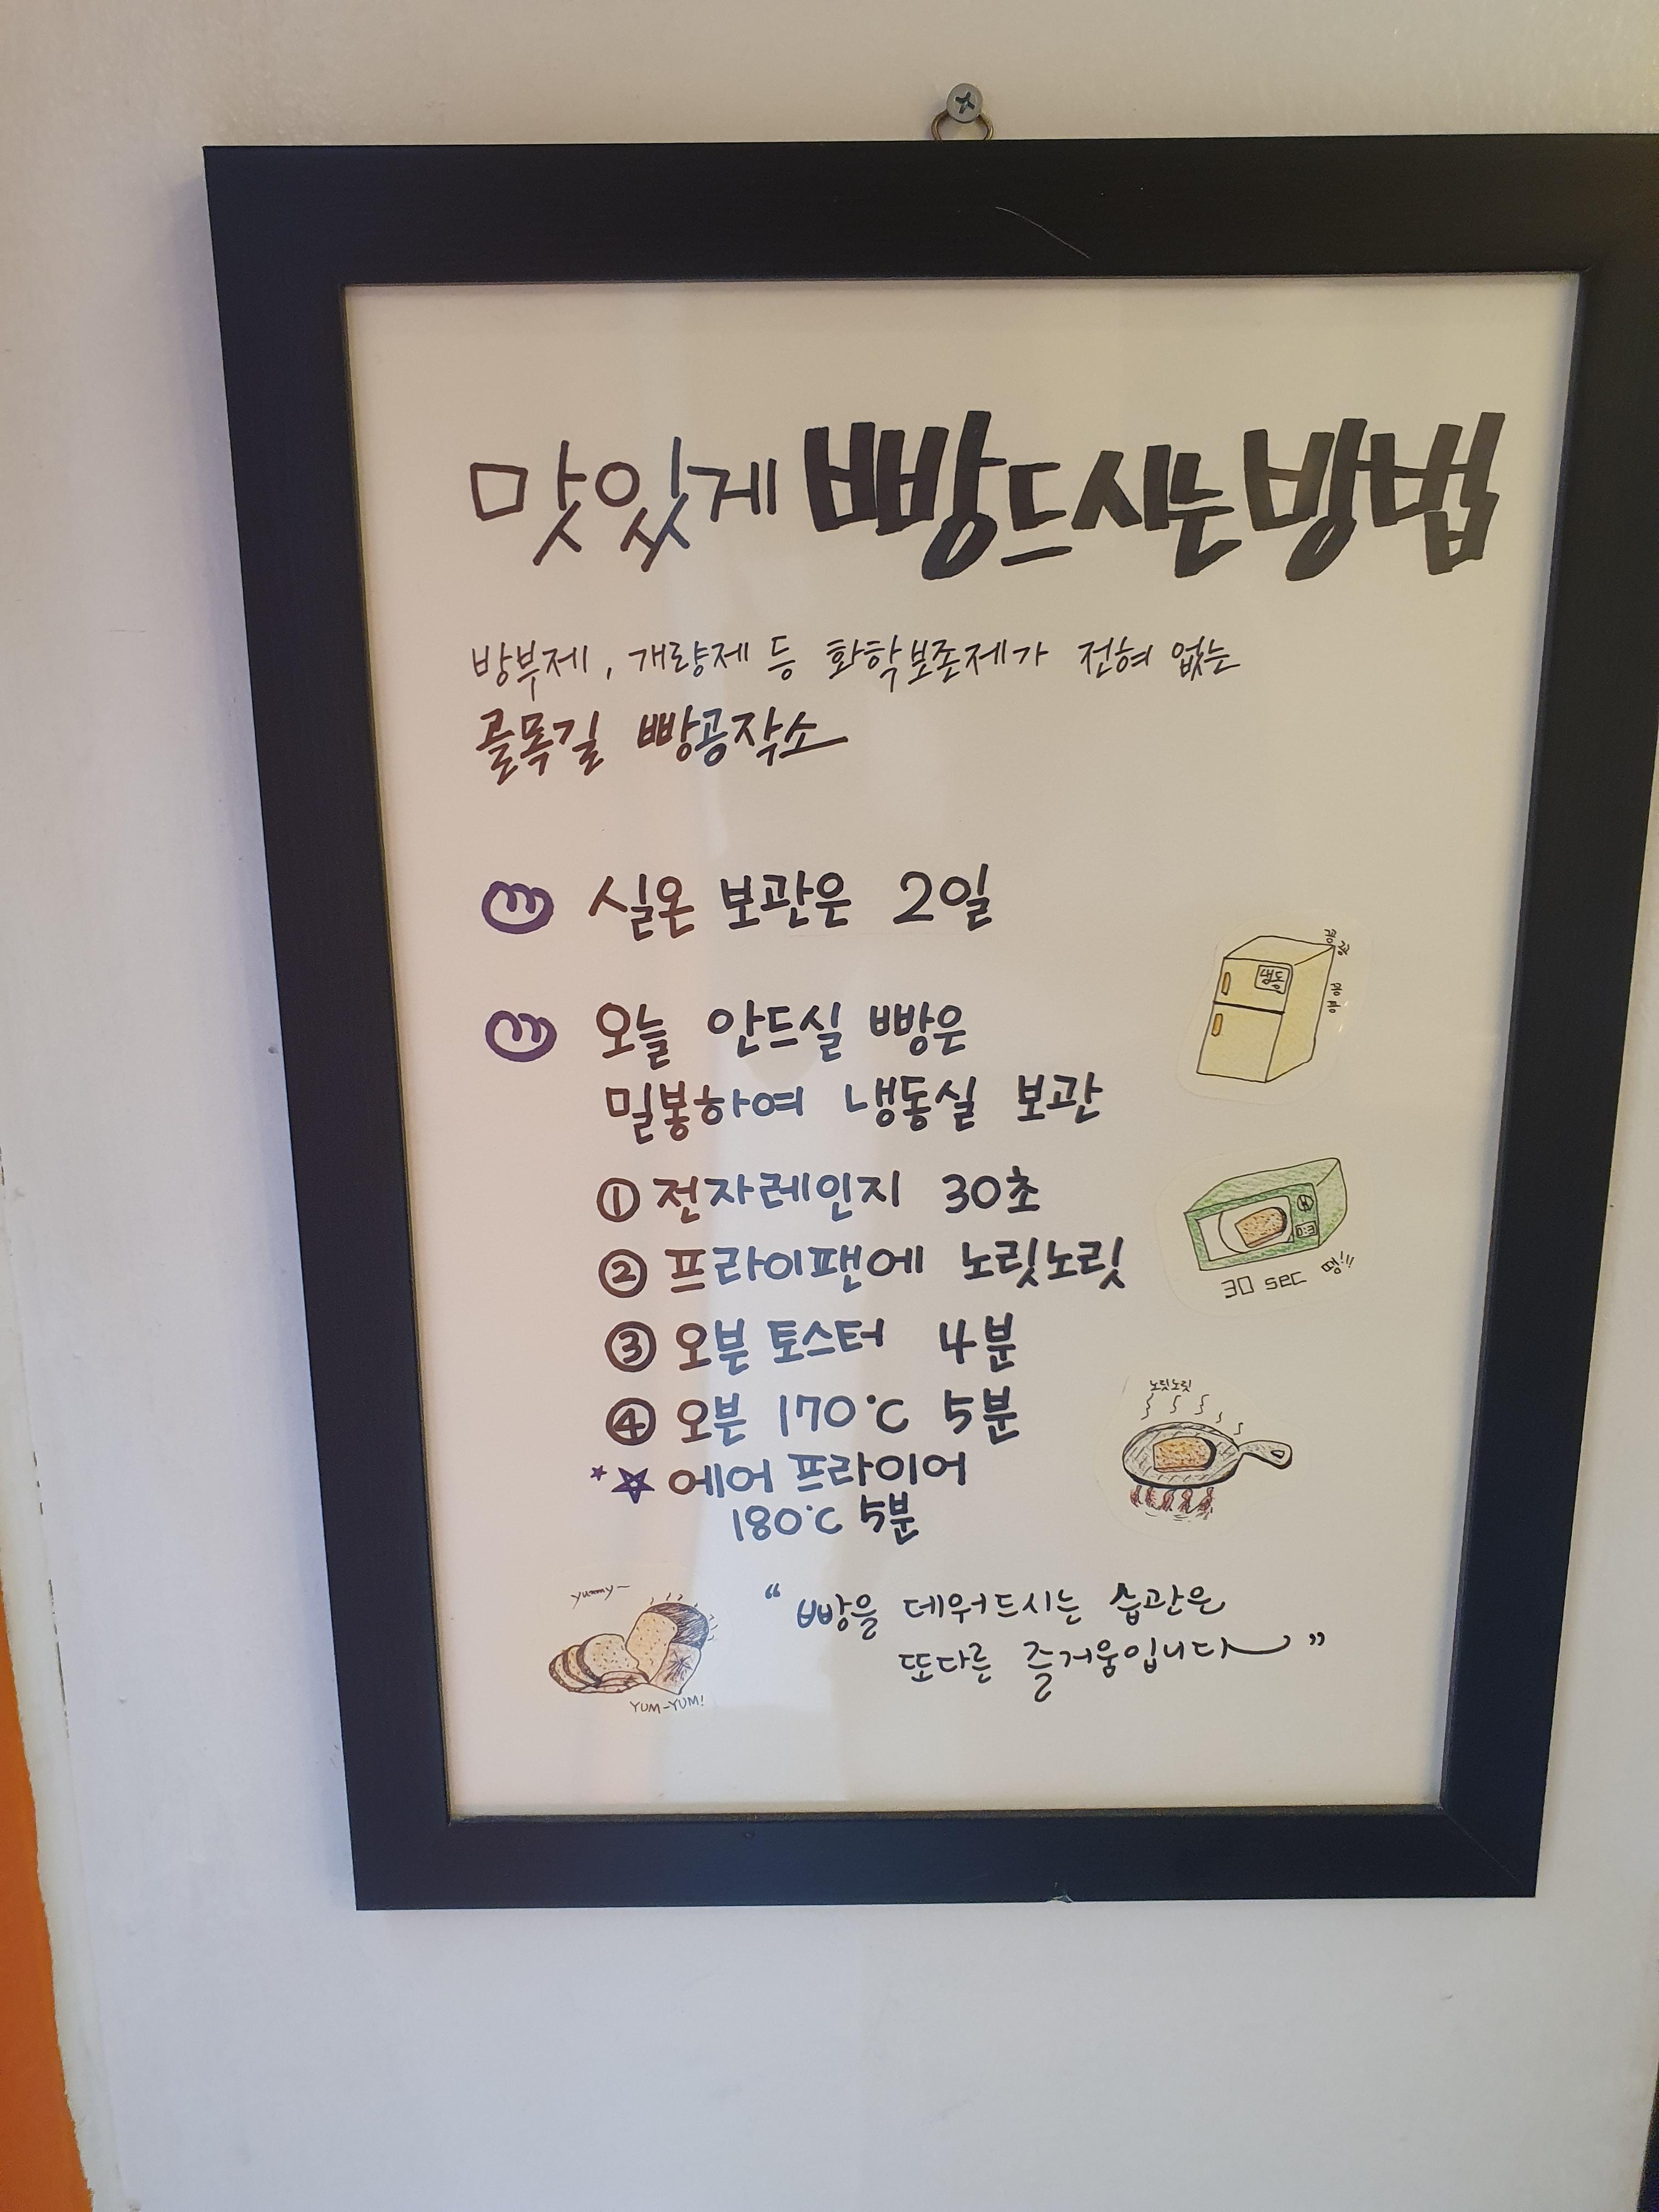 맛있게 빵드시는방법
방부제, 개량제 등 화학보존제가 전혀 없는
골목길 빵공작소
실온 보관은 2일
오늘 안드실 빵은
밀봉하여 냉동실 보관
냉동
① 전자레인지 30초
② 프라이팬에 노릇노릇
30 sec 땡!!!
③ 오븐 토스터 4분
④ 오븐 170°C 5분
노릇노릇
에어 프라이어
180°C 5분
yummy~
YUM-YUM!
“빵을 데워드시는 습관은
또다른 즐거움입니다”